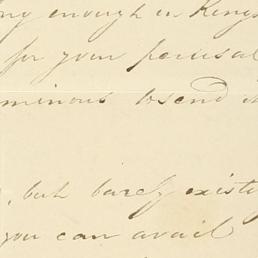 ng enough in Kings
for your perusal
minous to send i
, but barely existi
you can avail